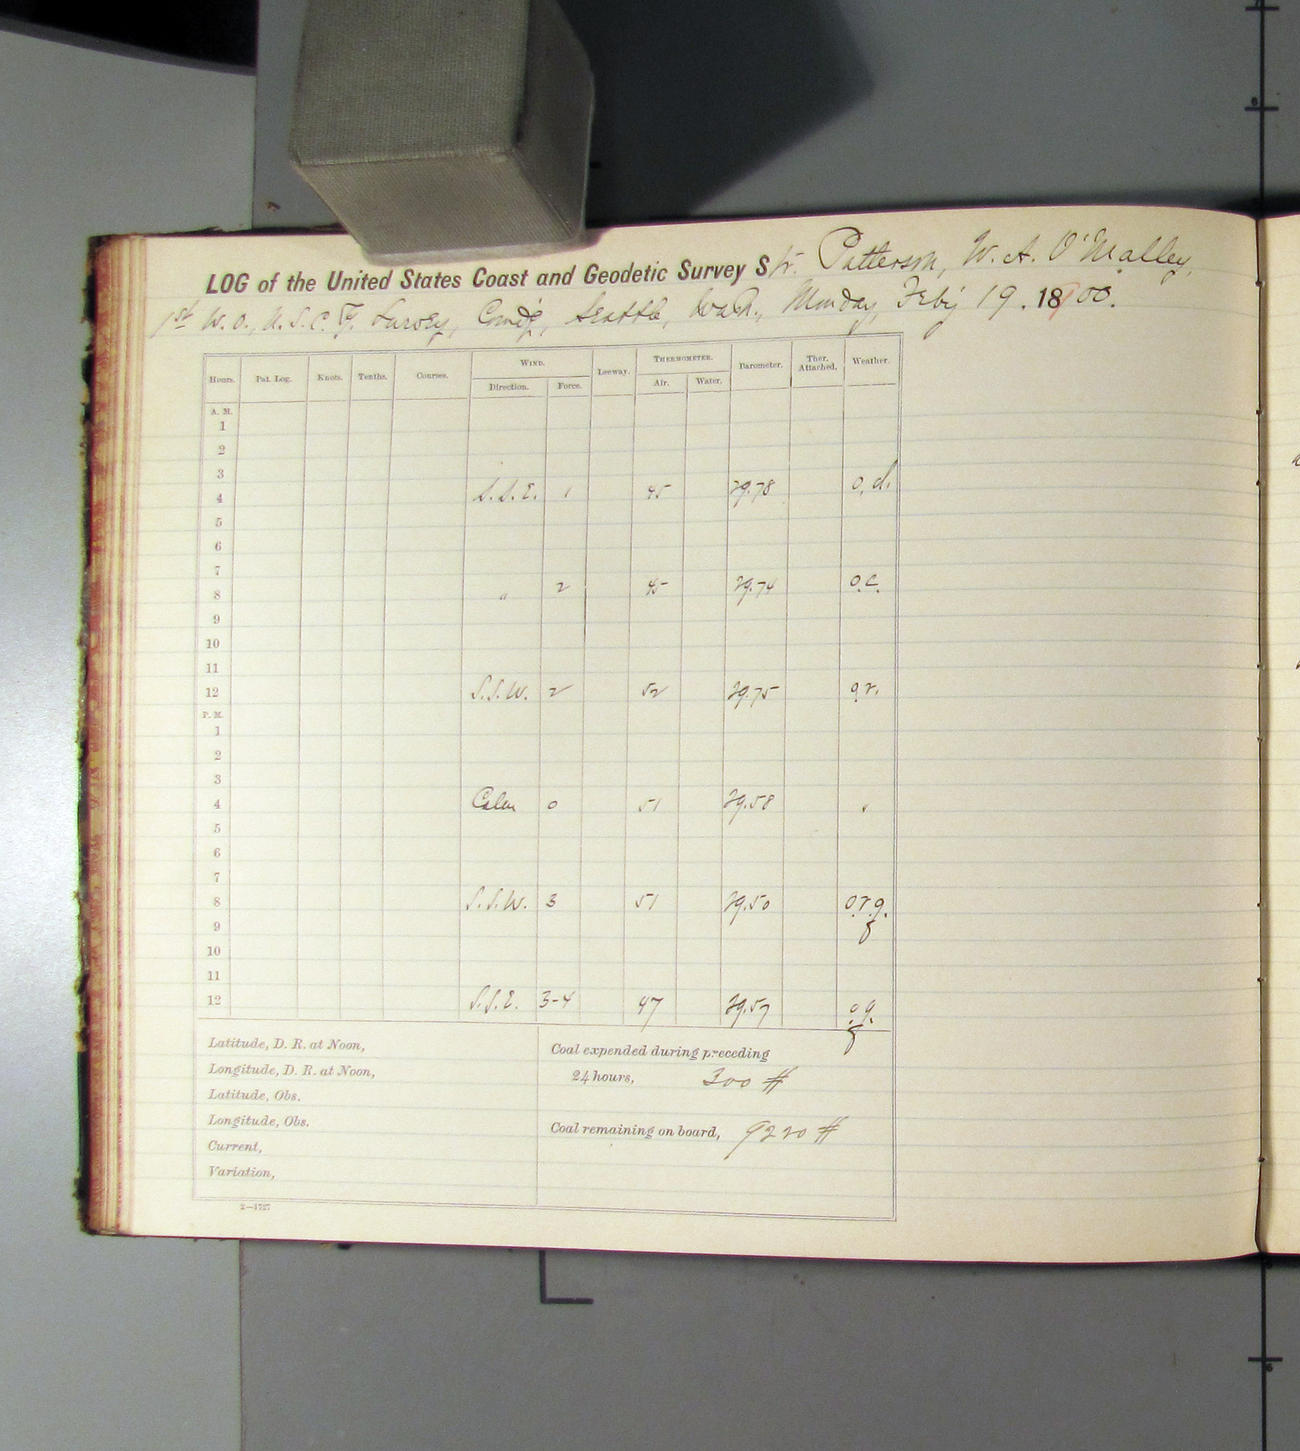 LOG of the United States Coast and Geodetic Survey Str. Patterson, W. A. O'Malley,
1st W. O., U. S. C. & G. Survey, Com'd'g, Seattle, Wash., Monday, Feb'y 19. 1900.
Hours. Pat. Log. Knots. Tenths. Courses. WIND. Leeway. THERMOMETER. Barometer. Ther. Attached. Weather.
Direction. Force. Air. Water.
A. M.
1
2
3
4 S.S.E. 1 45 29.78 o.d.
5
6
7
8 " 2 45 29.74 o.c.
9
10
11
12 S.S.W. 2 52 29.75 o.r.
P. M.
1
2
3
4 Calm 0 51 29.58
5
6
7
8 S.S.W. 3 51 29.50 o.r.q.
9
10
11
12 S.S.E. 3-4 47 29.57 o.q.
Latitude, D. R. at Noon,
Longitude, D. R. at Noon,
Latitude, Obs.
Longitude, Obs.
Current,
Variation,
Coal expended during preceding
24 hours, 300 #
Coal remaining on board, 9220 #
2—1727